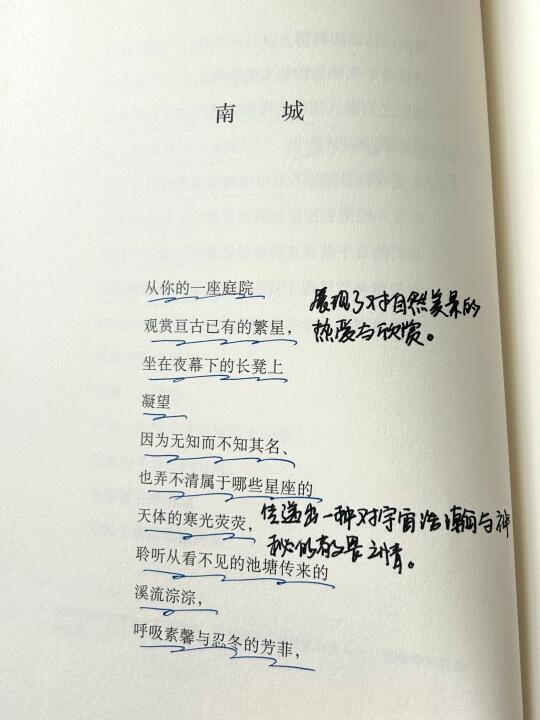 南 城
从你的一座庭院
观赏亘古已有的繁星，
坐在夜幕下的长凳上
凝望
因为无知而不知其名、
也弄不清属于哪些星座的
天体的寒光荧荧，
聆听从看不见的池塘传来的
溪流淙淙，
呼吸素馨与忍冬的芳菲，
展现了对自然美景的
热爱与欣赏。
传递出一种对宇宙浩瀚与神
秘的敬畏之情。